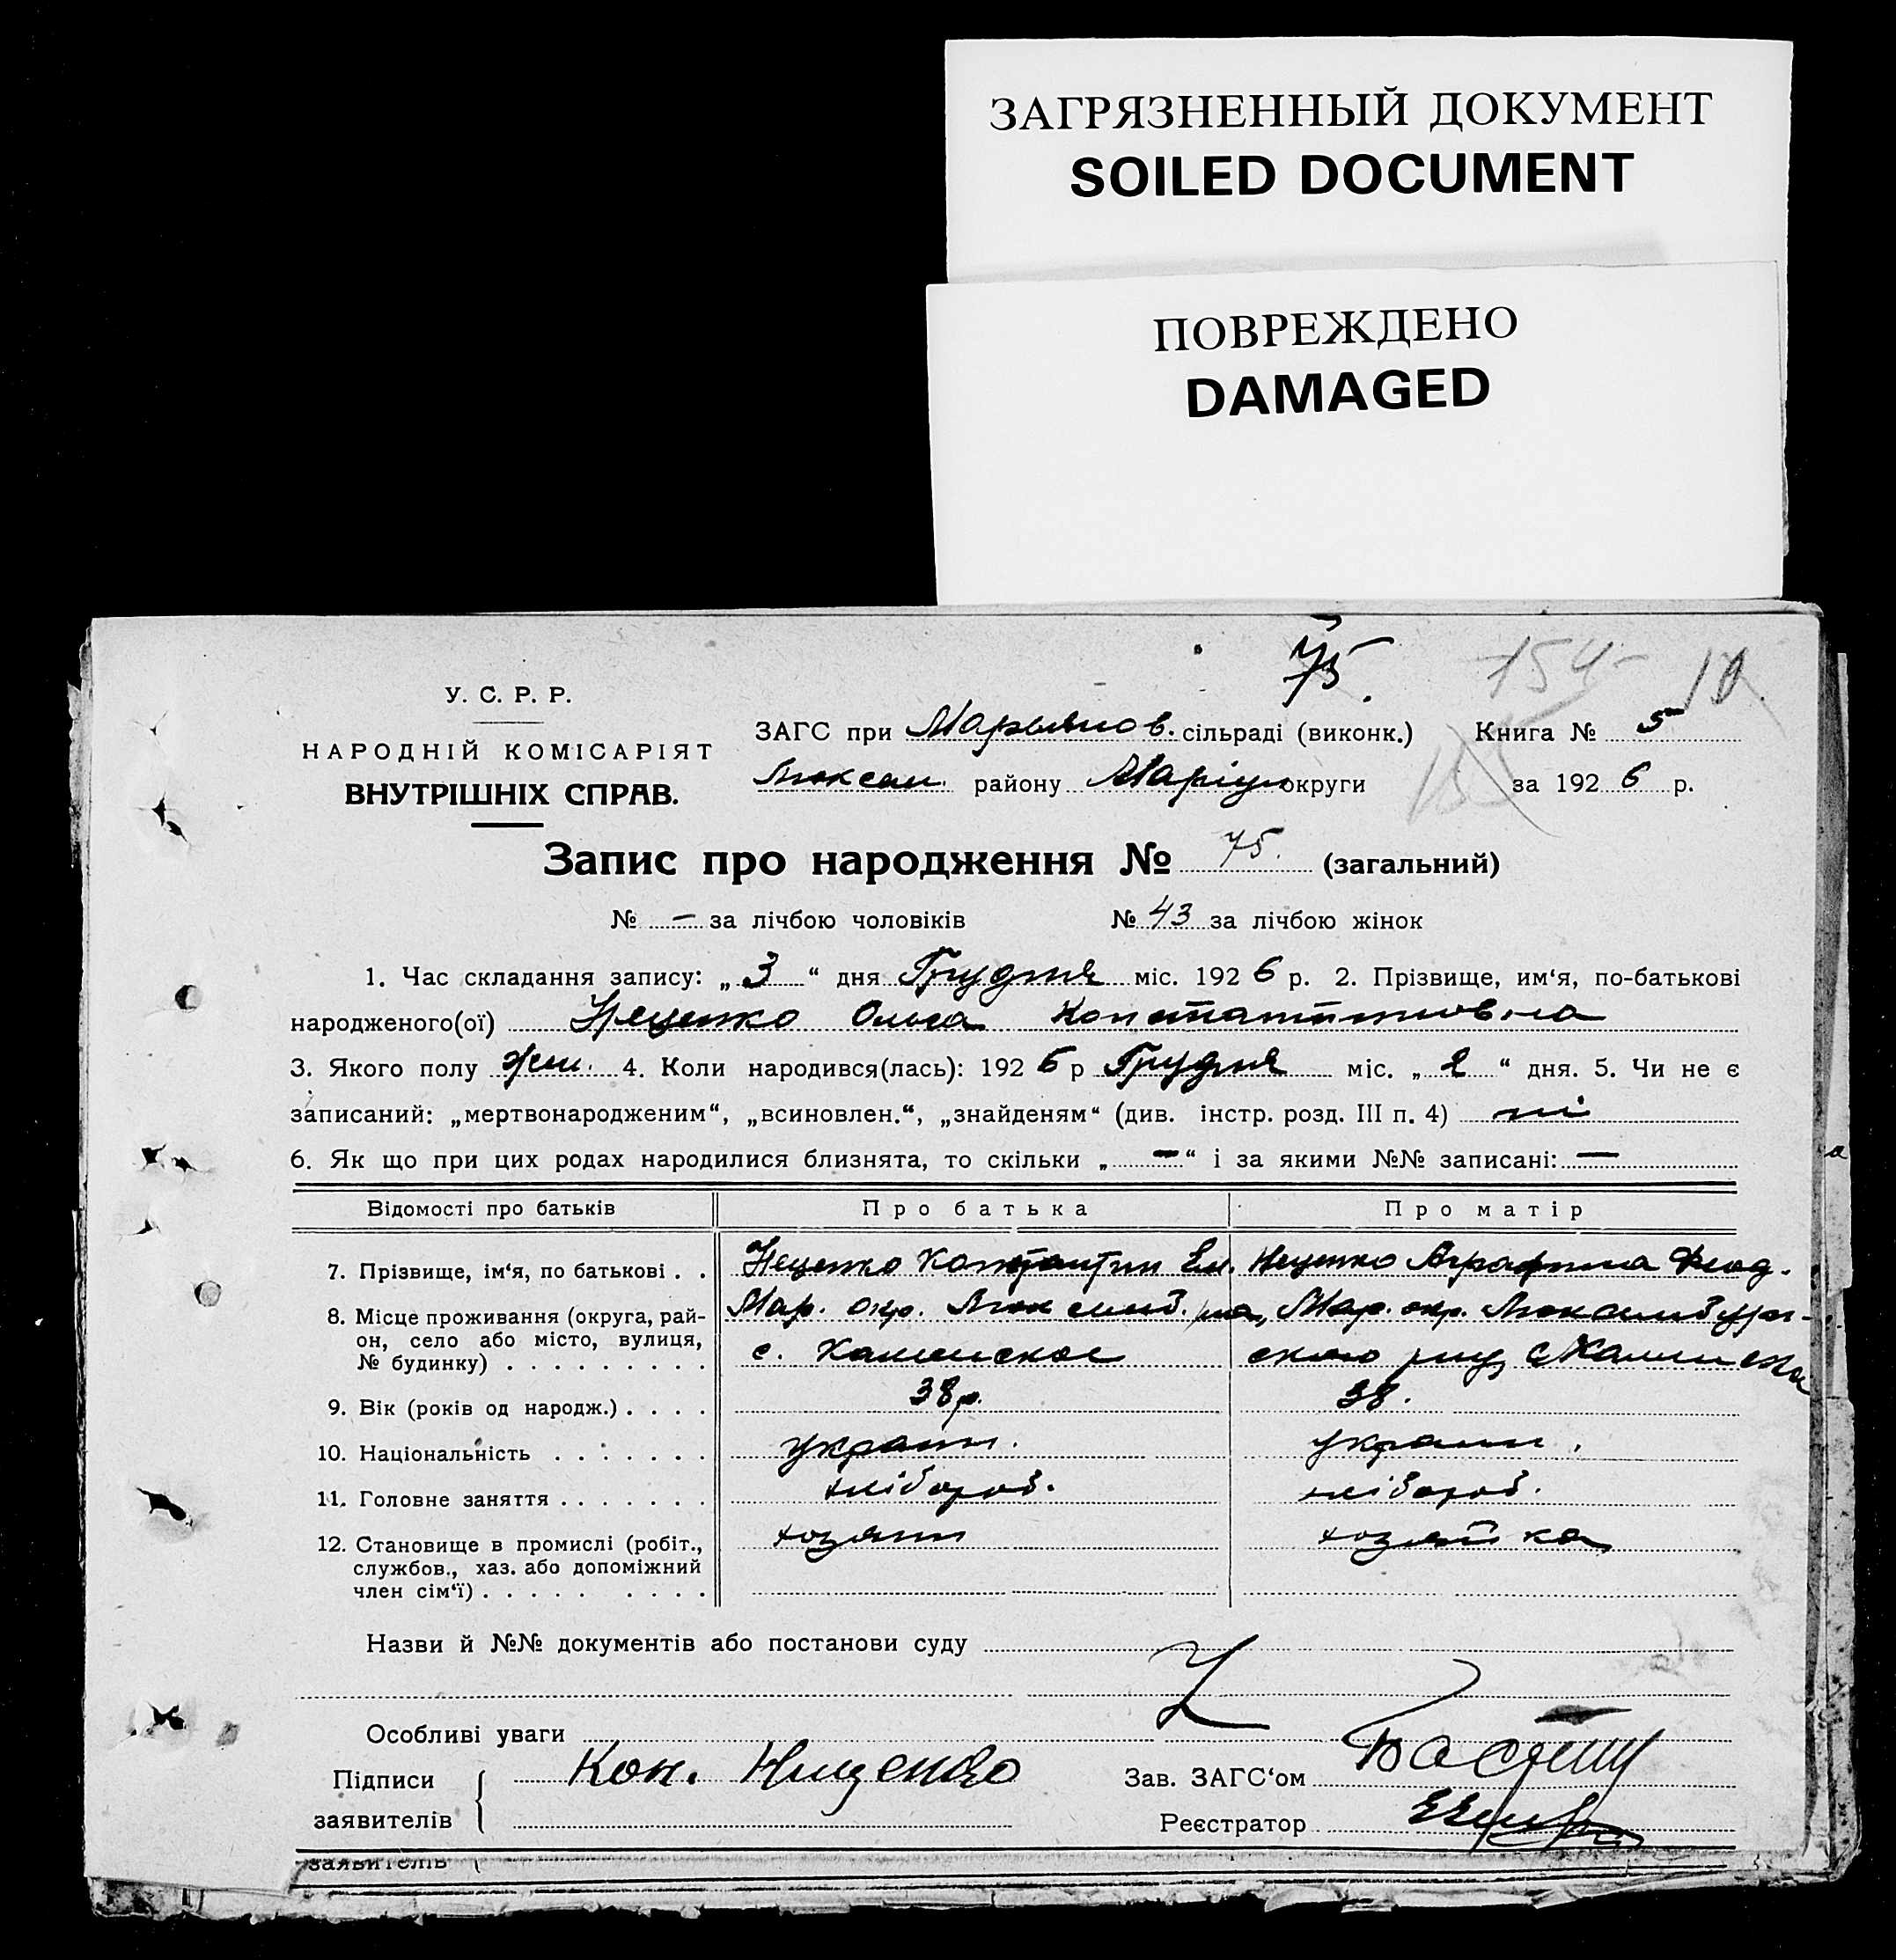 ЗАГРЯЗНЕННЫЙ ДОКУМЕНТ
SOILED DOCUMENT
ПОВРЕЖДЕНО
DAMAGED
75. 154
У. С. Р. Р.
НАРОДНІЙ КОМІСАРІЯТ
ВНУТРІШНІХ СПРАВ.
ЗАГС при Марьянов. сільраді (виконк.) Книга № 5
Люксем. району Маріуп округи за 1926 р.
Запис про народження № 75. (загальний)
№ — за лічбою чоловіків № 43 за лічбою жінок
1. Час складання запису: „ 3 “ дня Грудня міс. 1926 р. 2. Прізвище, им‘я, по-батькові
народженого(ої) Нещенко Ольга Константиновна
3. Якого полу жен. 4. Коли народився(лась): 1926 р Грудня міс. „ 2 “ дня. 5. Чи не є
записаний: „мертвонародженим“, „всиновлен.“, „знайденям“ (див. інстр. розд. III п. 4) ні
6. Як що при цих родах народилися близнята, то скільки „ — “ і за якими №№ записані: —
Відомості про батьків Про батька Про матір
7. Прізвище, ім‘я, по батькові . . Нещенко Константин Ем. Нещенко Аграфина Феод.
8. Місце проживання (округа, рай- Мар. окр. Мар. окр. Люксембург-
он, село або місто, вулиця,
№ будинку) . . . . . . . . . с. Каменское ского
9. Вік (років од народж.) . . . . 38 р. 38.
10. Національність . . . . . . . украин. украин.
11. Головне заняття . . . . . . . хлібороб. хлібороб.
12. Становище в промислі (робіт., хозяин хозяйка
службов., хаз. або допоміжний
член сім‘ї) . . . . . . . . . .
Назви й №№ документів або постанови суду
Особливі уваги
Підписи Кон. Нищенко Зав. ЗАГС‘ом
заявителів Реєстратор
заявителів